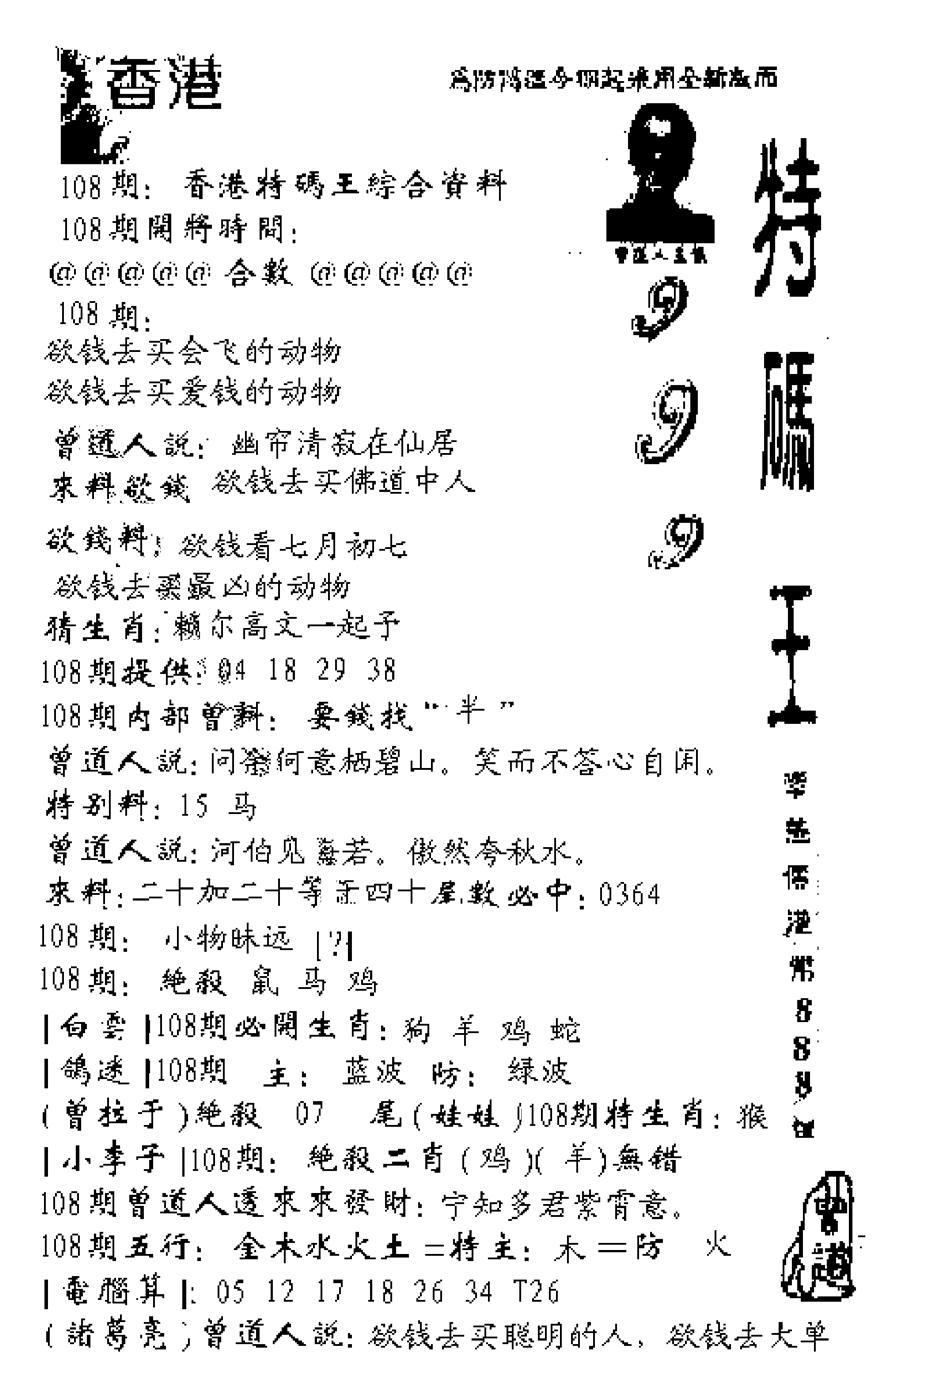 香港
特
碼
王
999
108期：香港特碼王綜合資料
108期開將時間：
@@@@@合數@@@@@
108期：
欲钱去买会飞的动物
欲钱去买爱钱的动物
曾道人説：幽帘清寂在仙居
來料欲錢 欲钱去买佛道中人
欲錢料：欲钱看七月初七
欲钱去买最凶的动物
猜生肖：赖尔高文一起予
108期提供：04 18 29 38
108期内部曾料：要錢找“半”
曾道人説：问何意栖碧山。笑而不答心自闲。
特别料：15 马
曾道人説：河伯见海若。傲然夸秋水。
來料：二十加二十等四十尾數必中：0364
108期：小物昧远 |?|
108期：絶殺 鼠 马 鸡
|白雲|108期必開生肖：狗 羊 鸡 蛇
|鴿迷|108期 主：蓝波 防：绿波
(曾拉于)絶殺 07 尾(娃娃)108期特生肖：猴
|小李子|108期：絶殺二肖(鸡)(羊)無錯
108期曾道人透來來發財：宁知多君紫霄意。
108期五行：金木水火土=特主：木=防 火
|電腦算|：05 12 17 18 26 34 T26
(諸葛亮)曾道人説：欲钱去买聪明的人，欲钱去大单
888
曾道